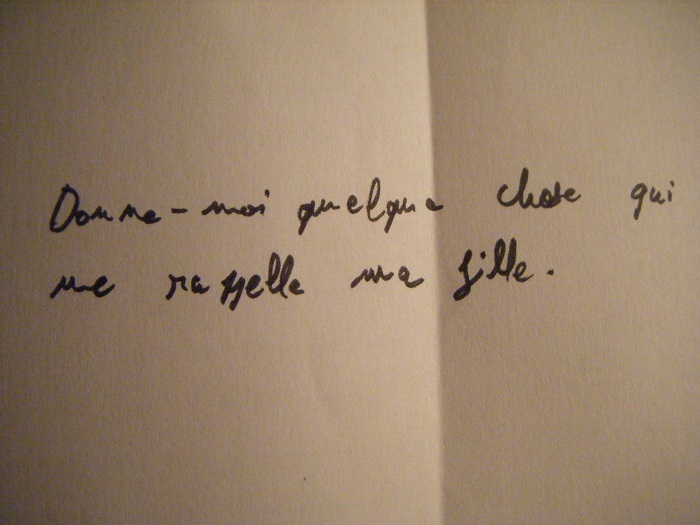 Donne-moi quelque chose qui
me rappelle ma fille.